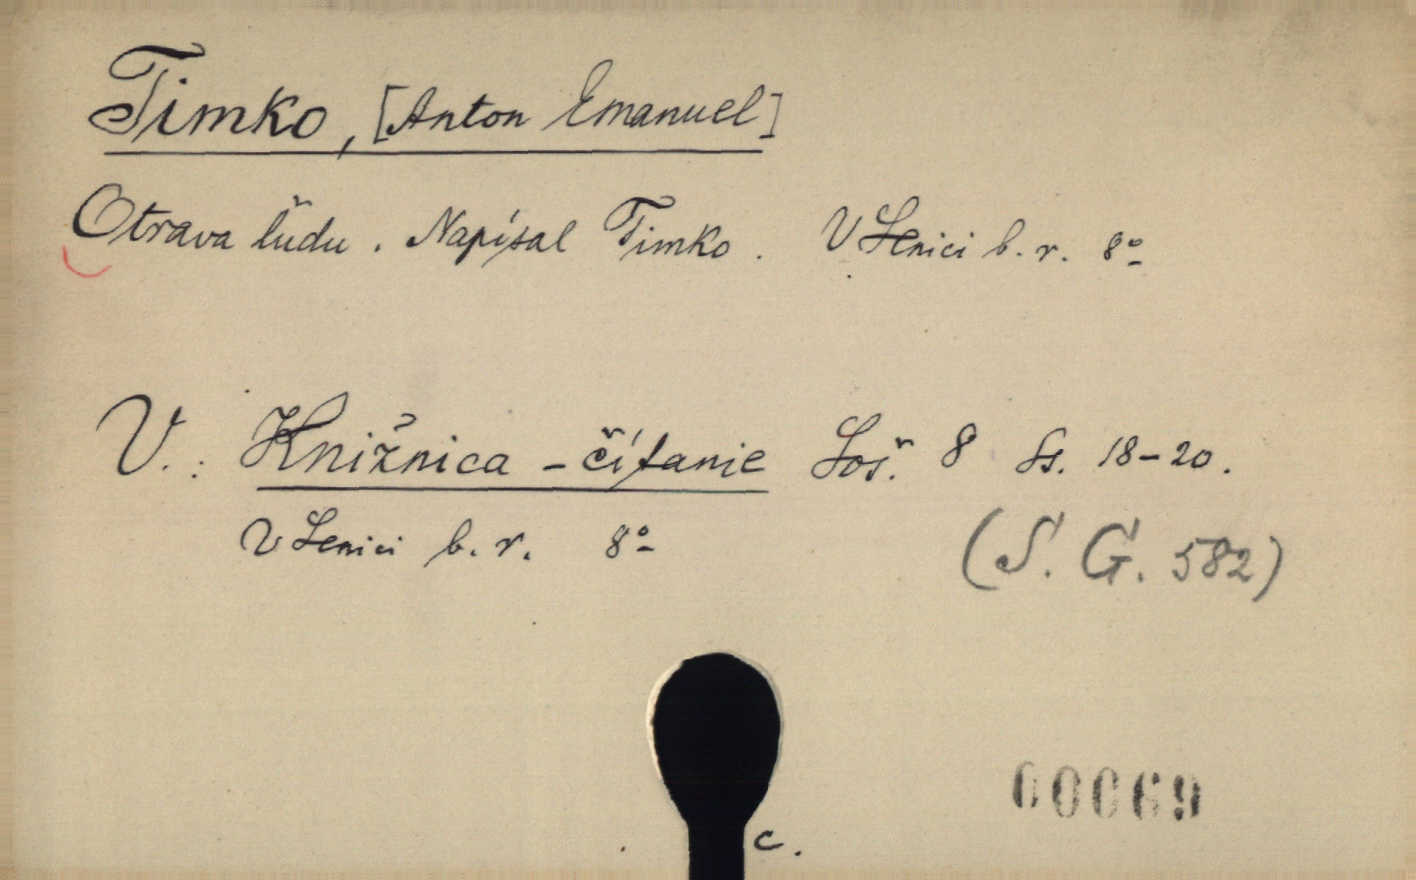 Timko, [Anton Emanuel]
Otrava ľudu. Napísal Timko. V Senici b. r. 8º
V.: Knižnica - čítanie Soš. 8 Ss. 18-20.
V Senici b. r. 8º
(S. G. 582)
00069
c.